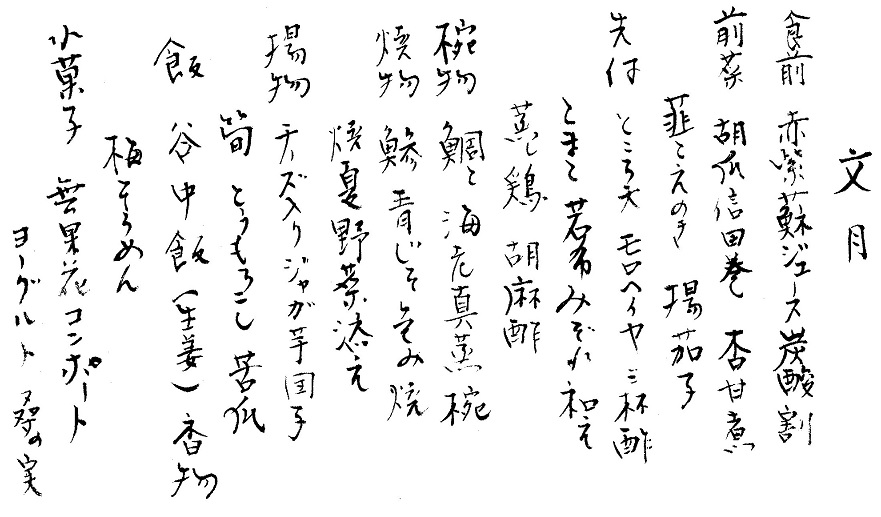 文月
食前 赤紫蘇ジュース炭酸割
前菜 胡瓜信田巻 杏甘煮
韮とえのき 揚茄子
先付 ところ天 モロヘイヤ三杯酢
とまと 若布みぞれ和え
蒸し鶏 胡麻酢
椀物 鯛と海老真蒸椀
焼物 鰺青じそ包み焼
焼夏野菜添え
揚物 チーズ入りジャガ芋団子
筍 とうもろこし 苦瓜
飯 谷中飯(生姜)香物
梅そうめん
小菓子 無果花コンポート
ヨーグルト 桑の実